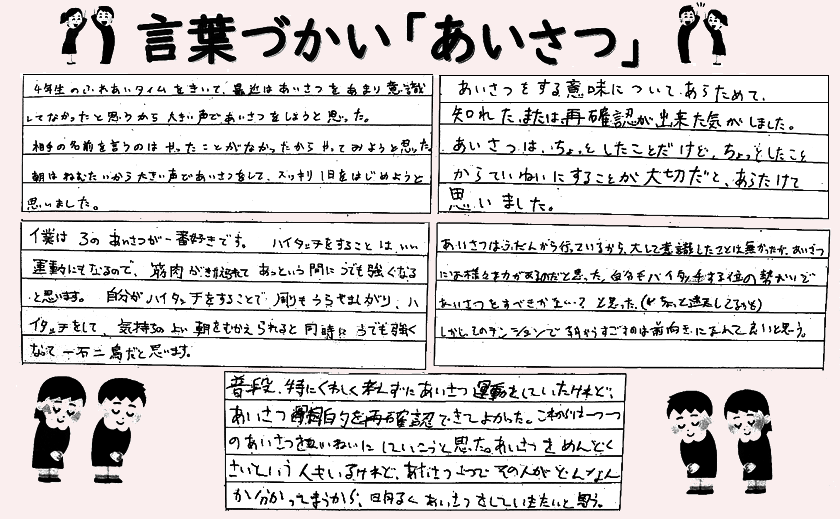 言葉づかい「あいさつ」
4年生のふれあいタイムをきいて、最近はあいさつをあまり意識
してなかったと思うから大きい声であいさつをしようと思った。
相手の名前を言うのはやったことがなかったからやってみようと思った
朝はねむたいから大きい声であいさつをして、スッキリ1日をはじめようと
思いました。
あいさつをする意味について、あらためて、
知れた、または再確認が出来た気がしました。
あいさつは、ちょっとしたことだけど、ちょっとしたこと
からていねいにすることが大切だと、あらためて
思いました。
僕は3のあいさつが一番好きです。 ハイタッチをすることはいい
運動にもなるので、筋肉がきたえられてあっという間にうでも強くなる
と思います。 自分がハイタッチをすることで周りもうらやましがり、ハ
イタッチをして、気持ちのよい朝をむかえられると同時にうでも強く
なって一石二鳥だと思います。
あいさつはふだんから行っているから、大して意識したことは無かったが、あいさつ
には様々な力があるのだと思った。自分もハイタッチする位の勢いで
あいさつをすべきだと思った。
しかし、のテンションで朝からすごすのは前向きになれて良いと思う。
普段、特にくわしく考えずにあいさつ運動をしていたけれど、
あいさつの目的を再確認できてよかった。これからは一つ一つ
のあいさつをていねいにしていこうと思った。あいさつをめんどく
さいという人もいるけれど、あいさつ一つでその人がどんな人
か分かってしまうから、明るくあいさつをしていきたいと思う。